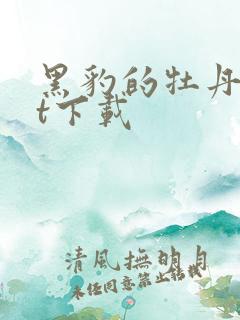 黑豹的牡丹
t下載
清風撫明月
未经同意禁止转载